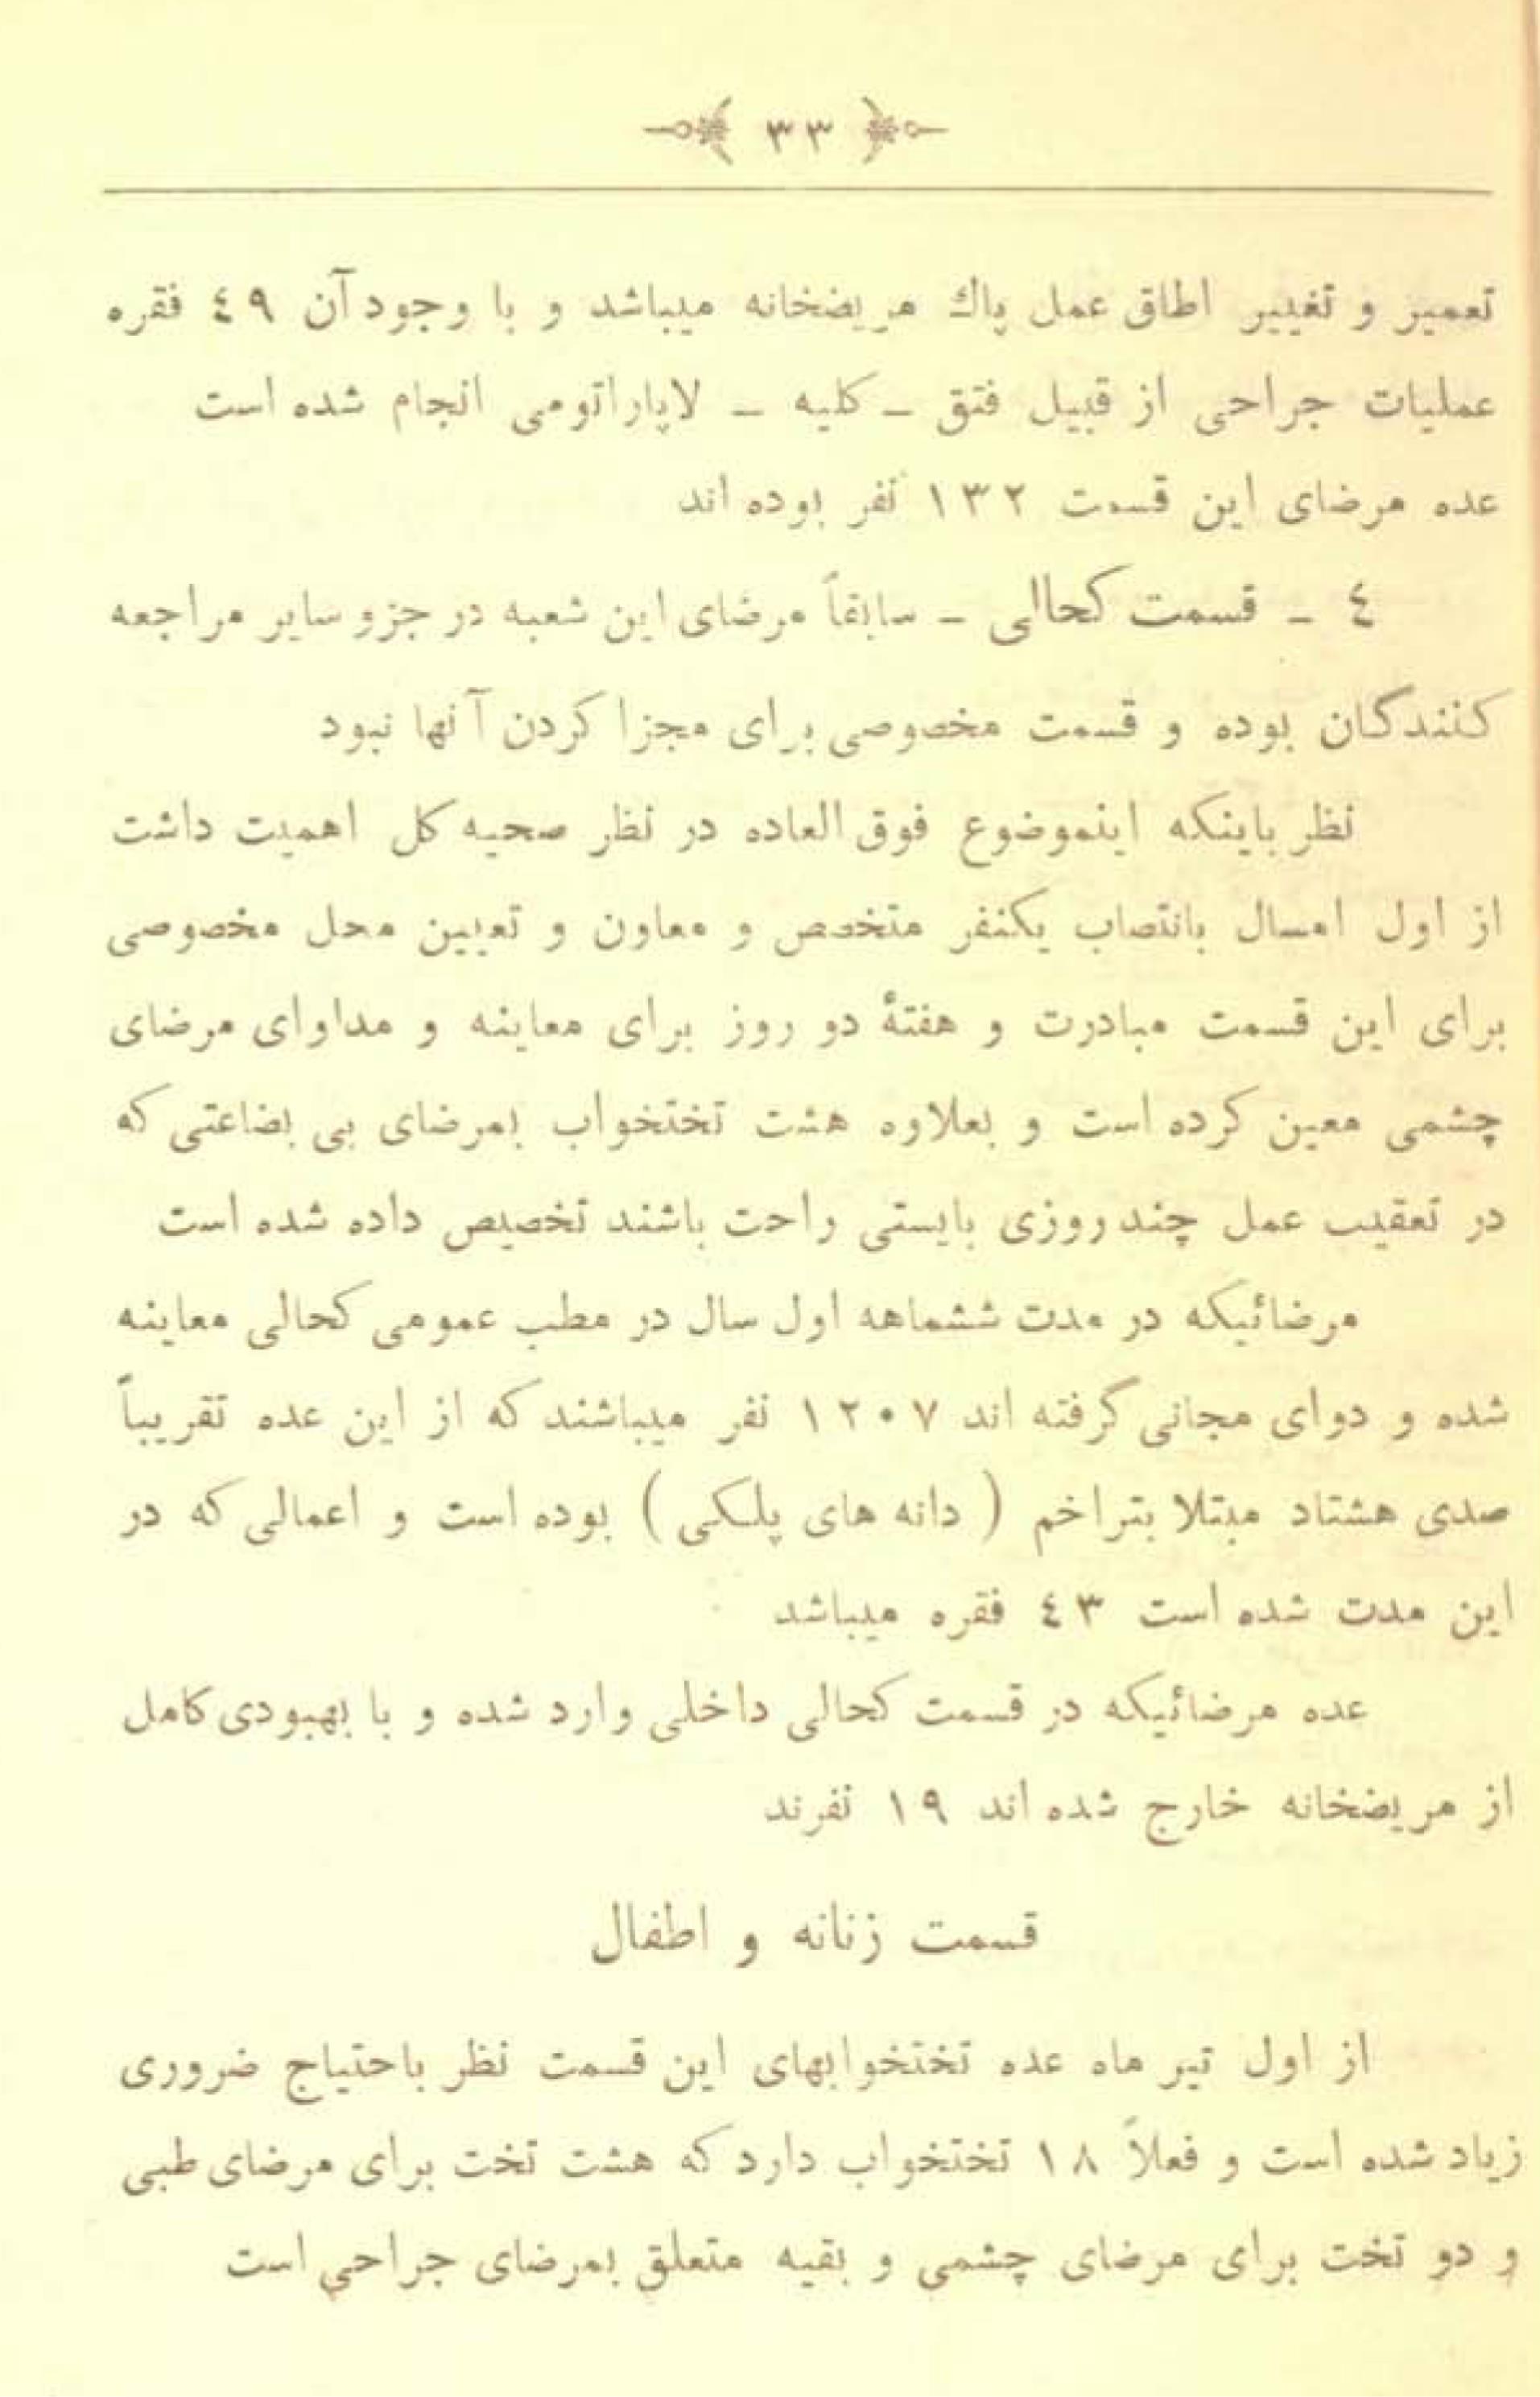 ۳۳
تعمیر و تغییر اطاق عمل پاك مریضخانه میباشد و با وجود آن ٤۹ فقره
عملیات جراحی از قبیل فتق ـ کلیه ـ لاپاراتومی انجام شده است
عده مرضای این قسمت ۱۳۲ نفر بوده اند
٤ ـ قسمت کحالی ـ سابقاً مرضای این شعبه در جزو سایر مراجعه
کنندگان بوده و قسمت مخصوصی برای مجزا کردن آنها نبود
نظر باینکه اینموضوع فوق العاده در نظر صحیه کل اهمیت داشت
از اول امسال بانتصاب یکنفر متخصص و معاون و تعیین محل مخصوصی
برای این قسمت مبادرت و هفتهٔ دو روز برای معاینه و مداوای مرضای
چشمی معین کرده است و بعلاوه هشت تختخواب بمرضای بی بضاعتی که
در تعقیب عمل چند روزی بایستی راحت باشند تخصیص داده شده است
مرضائیکه در مدت ششماهه اول سال در مطب عمومی کحالی معاینه
شده و دوای مجانی گرفته اند ۱۲۰۷ نفر میباشند که از این عده تقریباً
صدی هشتاد مبتلا بتراخم ( دانه های پلکی ) بوده است و اعمالی که در
این مدت شده است ٤۳ فقره میباشد
عده مرضائیکه در قسمت کحالی داخلی وارد شده و با بهبودی کامل
از مریضخانه خارج شده اند ۱۹ نفرند
قسمت زنانه و اطفال
از اول تیر ماه عده تختخوابهای این قسمت نظر باحتیاج ضروری
زیاد شده است و فعلاً ۱۸ تختخواب دارد که هشت تخت برای مرضای طبی
و دو تخت برای مرضای چشمی و بقیه متعلق بمرضای جراحی است